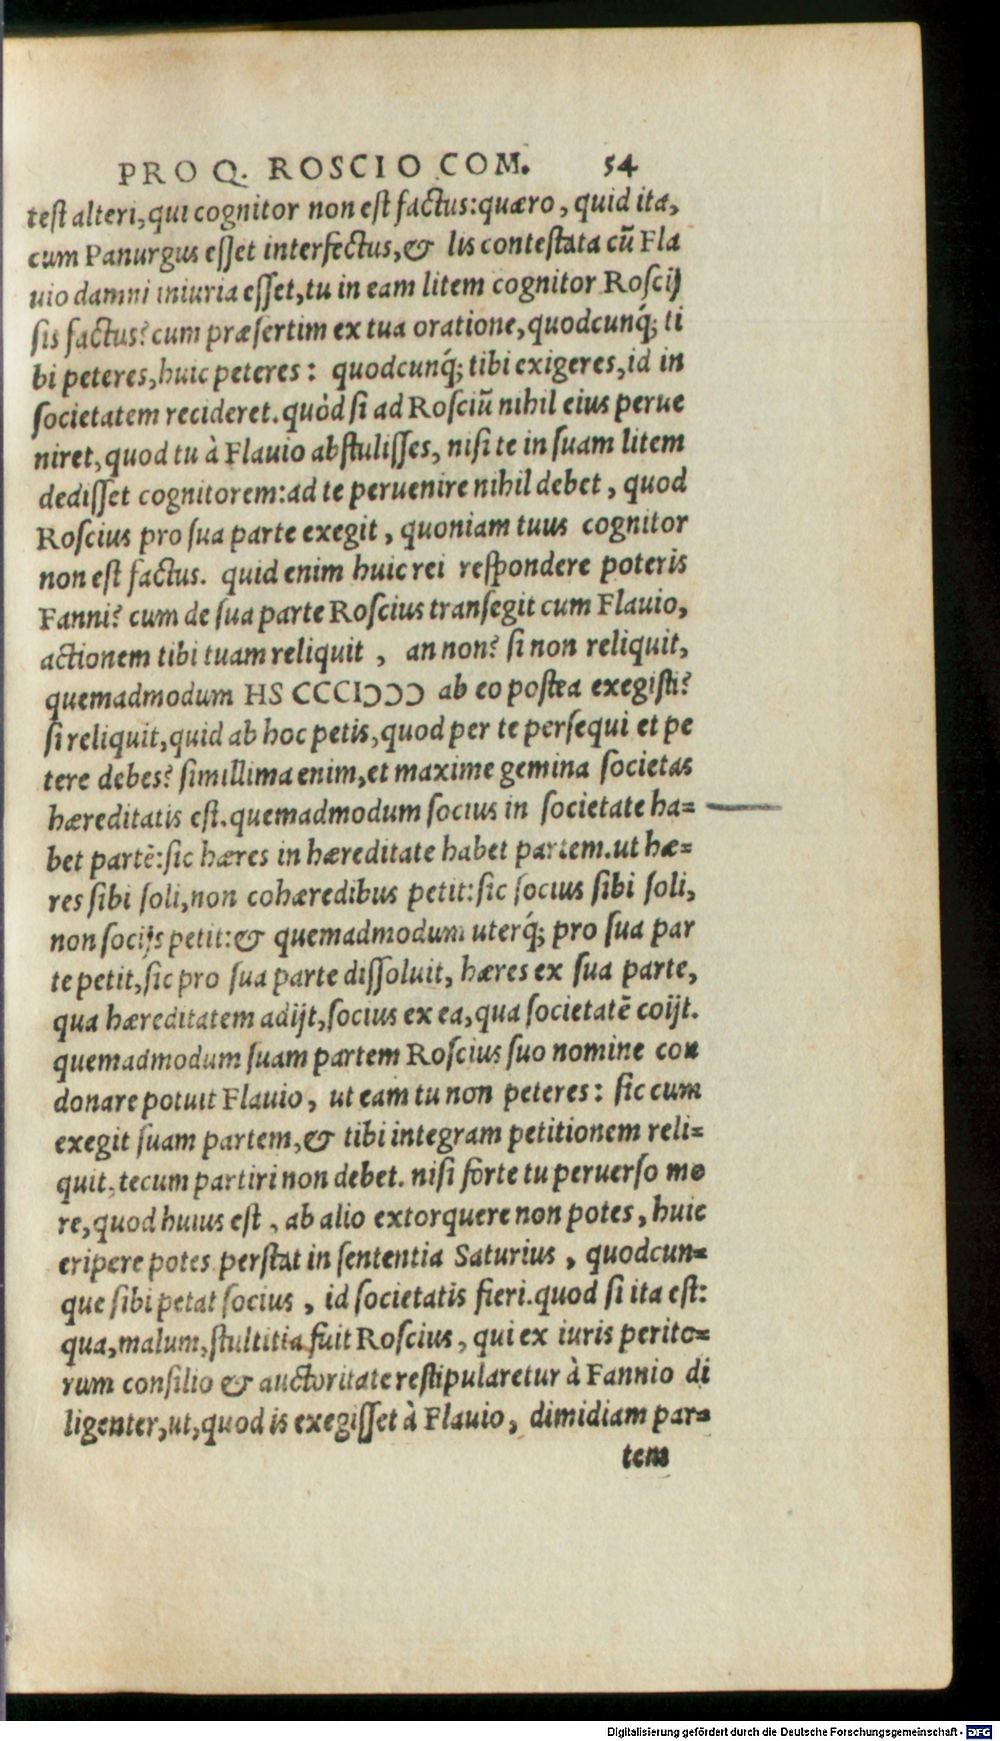 PRO Q. ROSCIO COM. 54
test alteri, qui cognitor non est factus: quæro, quid ita,
cum Panurgus esset interfectus, & lis contestata cũ Fla
uio damni iniuria esset, tu in eam litem cognitor Roscij
sis factus? cum præsertim ex tua oratione, quodcunq́; ti
bi peteres, huic peteres: quodcunq́; tibi exigeres, id in
societatem recideret. quòd si ad Rosciũ nihil eius perue
niret, quod tu à Flauio abstulisses, nisi te in suam litem
dedisset cognitorem: ad te peruenire nihil debet, quod
Roscius pro sua parte exegit, quoniam tuus cognitor
non est factus. quid enim huic rei respondere poteris
Fanni? cum de sua parte Roscius transegit cum Flauio,
actionem tibi tuam reliquit, an non? si non reliquit,
quemadmodum HS CCCIↃↃↃ ab eo postea exegisti?
si reliquit, quid ab hoc petis, quod per te persequi et pe
tere debes? simillima enim, et maxime gemina societas
hæreditatis est. quemadmodum socius in societate ha=
bet partẽ: sic hæres in hæreditate habet partem. ut hæ=
res sibi soli, non cohæredibus petit: sic socius sibi soli,
non socijs petit: & quemadmodum uterq́; pro sua par
te petit, sic pro sua parte dissoluit, hæres ex sua parte,
qua hæreditatem adijt, socius ex ea, qua societatẽ coijt.
quemadmodum suam partem Roscius suo nomine con
donare potuit Flauio, ut eam tu non peteres: sic cum
exegit suam partem, & tibi integram petitionem reli=
quit, tecum partiri non debet. nisi forte tu peruerso mo
re, quod huius est, ab alio extorquere non potes, huic
eripere potes. perstat in sententia Saturius, quodcun=
que sibi petat socius, id societatis fieri. quod si ita est:
qua, malum, stultitia fuit Roscius, qui ex iuris perito=
rum consilio & auctoritate restipularetur à Fannio di
ligenter, ut, quod is exegisset à Flauio, dimidiam par=
tem
Digitalisierung gefördert durch die Deutsche Forschungsgemeinschaft - DFG